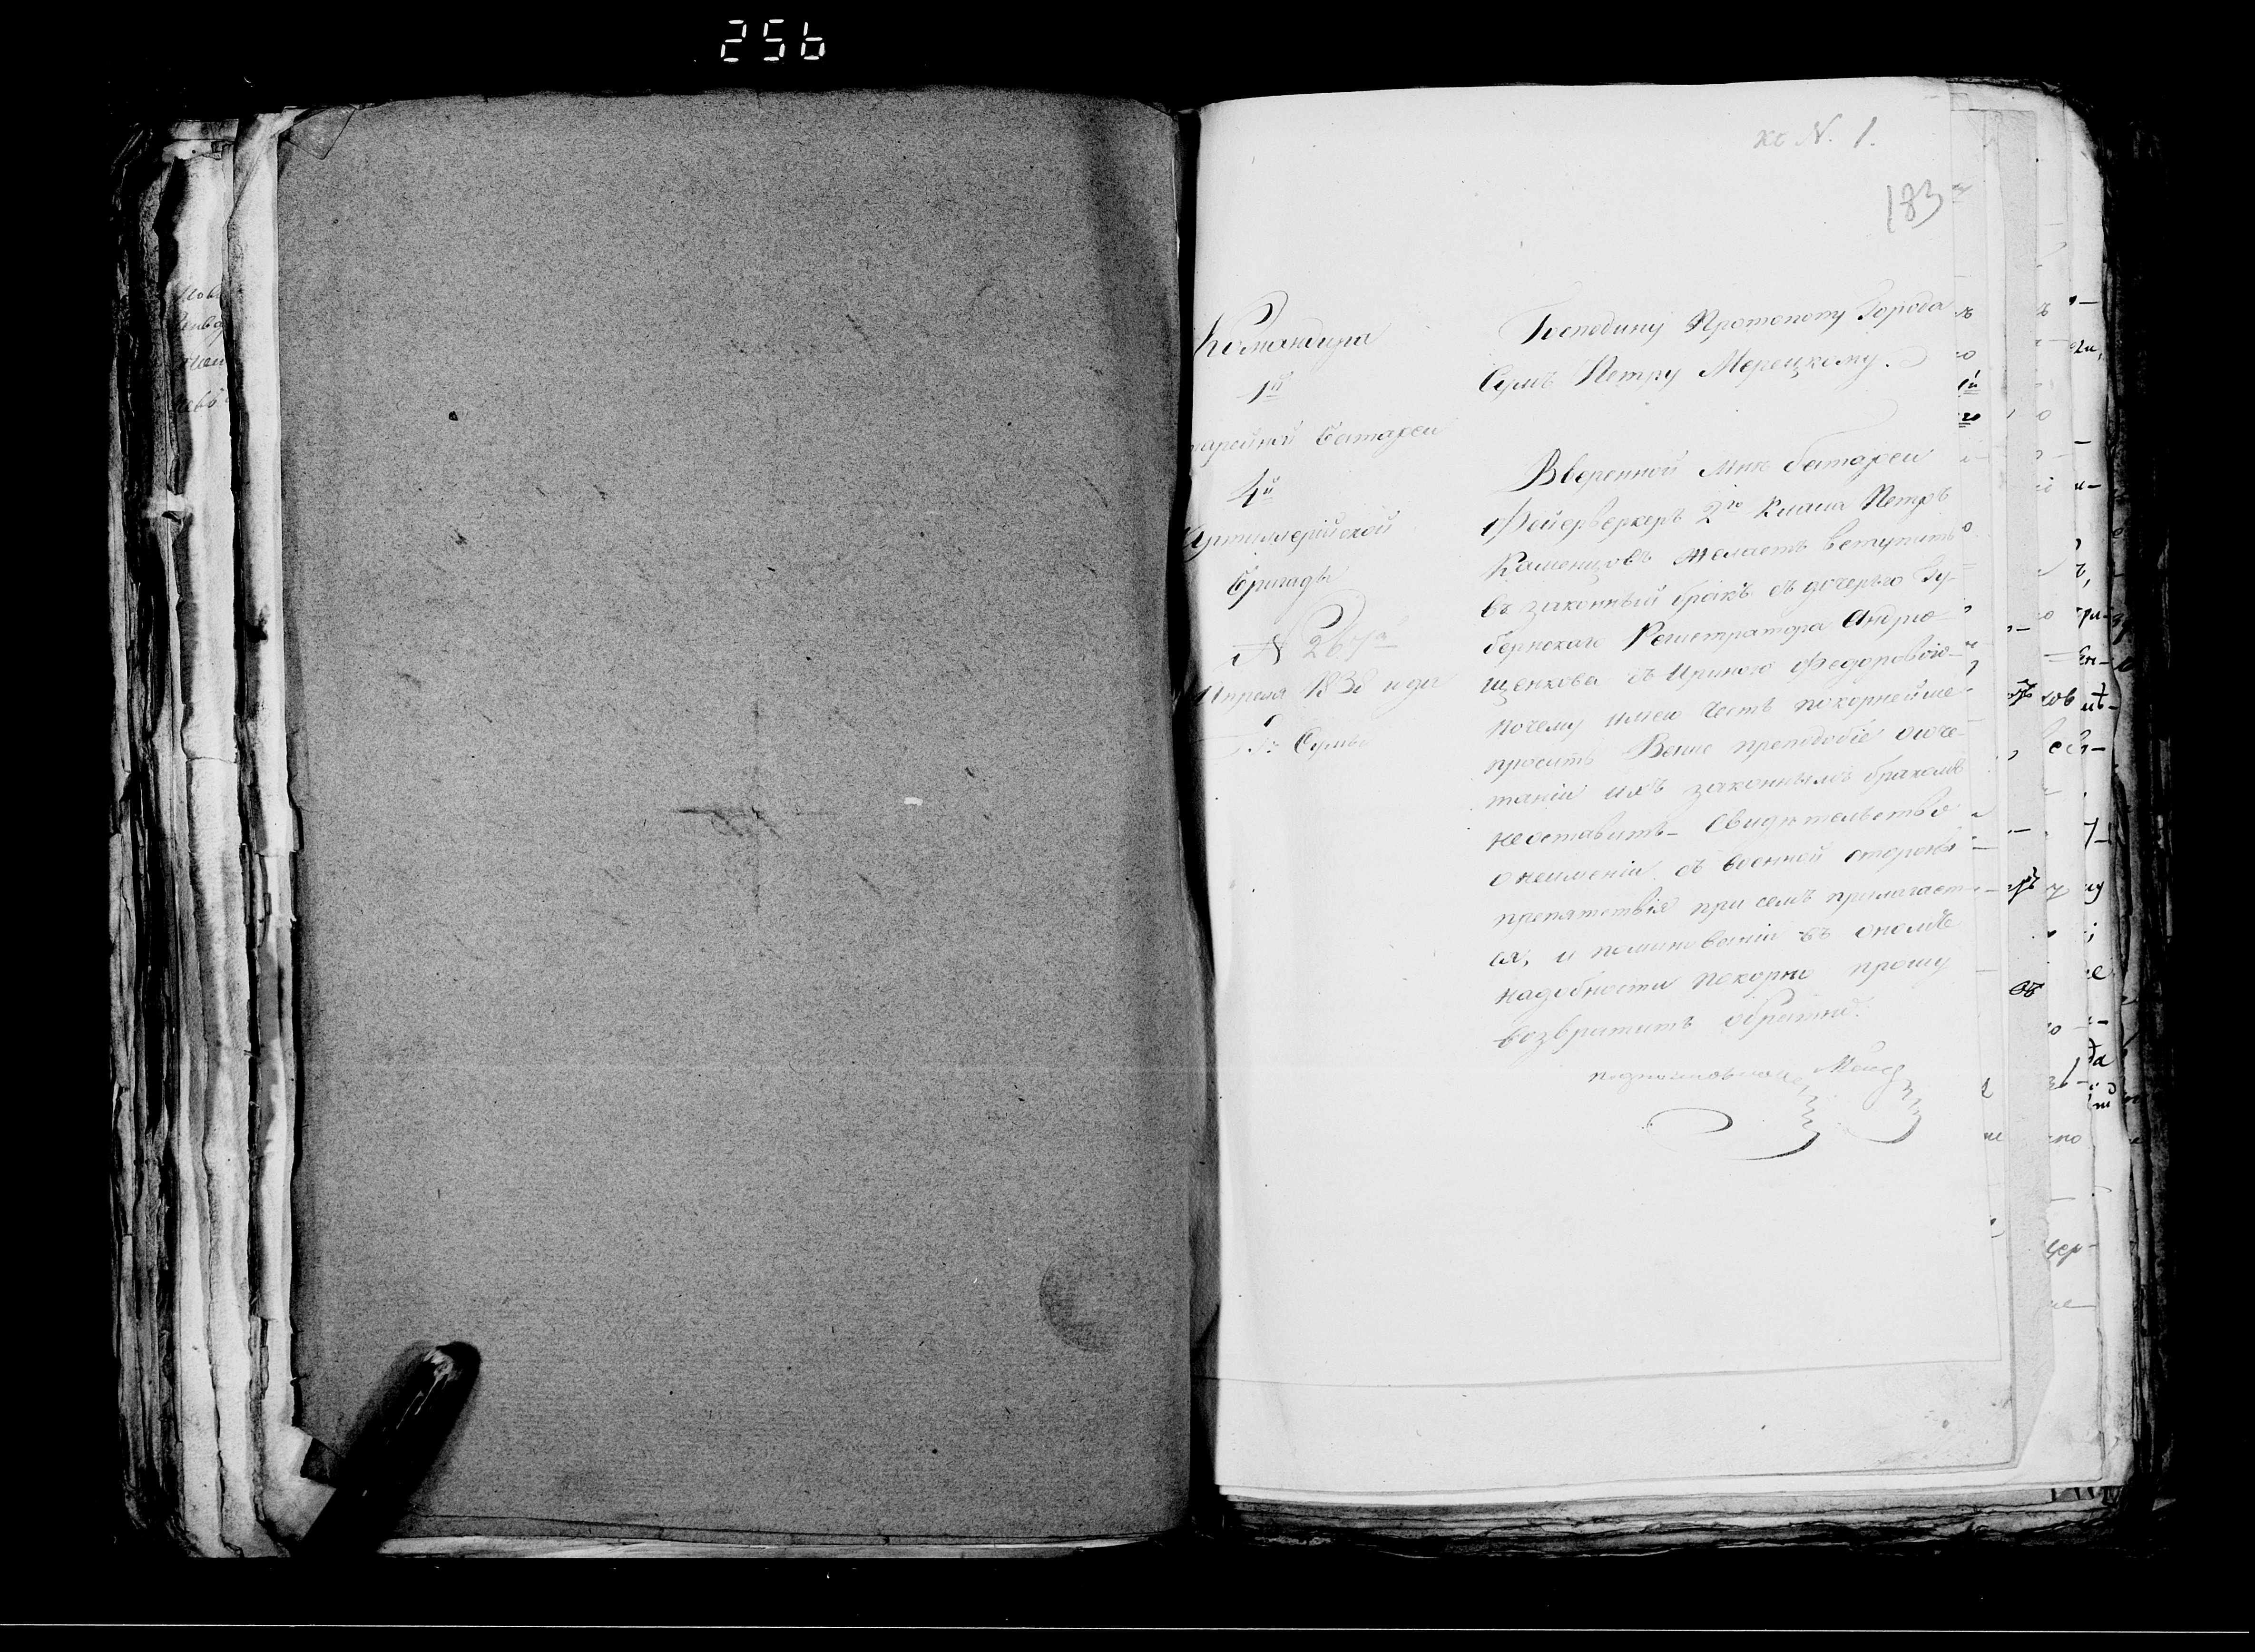 256
ко N. 1.
183
Командира
1й
Батареи
4й
Артиллерійской
Бригады
N 267
Апреля 1838 года
Г: Сумы
Господину Протопопу Города
Сумъ Петру Мерецкому.
Вверенной мне батареи
Фейерверкеръ 2го Класа Петръ
Каменцовъ желаетъ вступить
въ законный бракъ съ дочерью Гу-
бернскаго Регистратора Андрю-
щенкова съ Ириною Федоровою
почему имею честь покорнейше
просить Ваше преподобіе о соче-
таніи ихъ законнымъ бракомъ
неоставить. Свидетельство
о неименіи съ военной стороны
препятствія при семъ прилагает-
ся, и поминованіи въ ономъ
надобности покорно прошу
возвратить обратно.